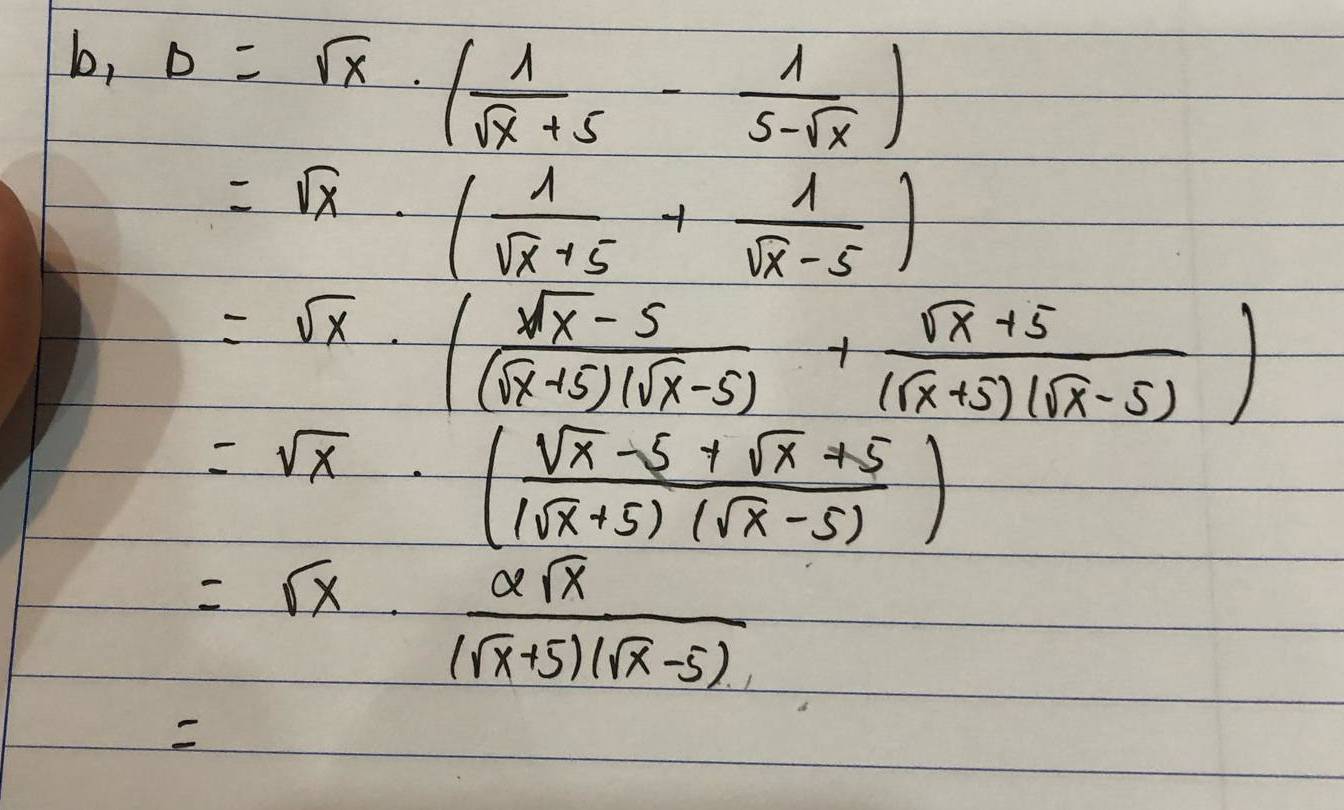 b, D = √x . (1/(√x + 5) - 1/(5-√x))
= √x . (1/(√x + 5) + 1/(√x - 5))
= √x . ((√x - 5)/((√x+5)(√x-5)) + (√x + 5)/((√x+5)(√x-5)))
= √x . ((√x - 5 + √x + 5)/((√x+5) (√x - 5)))
= √x . 2√x/((√x+5)(√x-5))
=